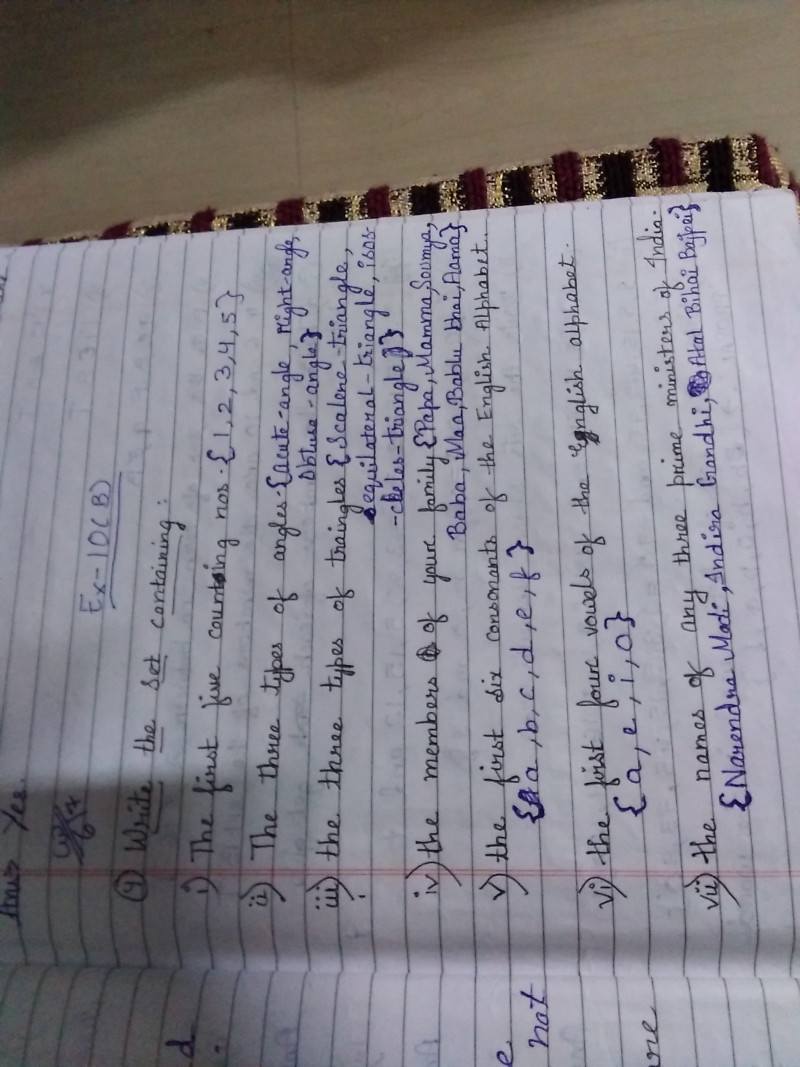 Ans> Yes.
Ex-10(B)
Q) Write the set containing:
i) The first five counting nos-{1, 2, 3, 4, 5}
ii) The three types of angles-{Acute-angle, Right-angle,
Obtuse-angle}
iii) the three types of traingles {Scalene-triangle,
equilateral-triangle, isos
-celes-triangle}
iv) the members of your family {Papa, Mamma, Soumya,
Baba, Maa, Bablu bhai, Aama}
v) the first six consonants of the English Alphabet.
{a, b, c, d, e, f}
vi) the first four vowels of the English alphabet.
{a, e, i, o}
vii) the names of any three prime ministers of India.
{Narendra Modi, Indira Gandhi, Atal Bihai Bajpei}
d
e
not
are